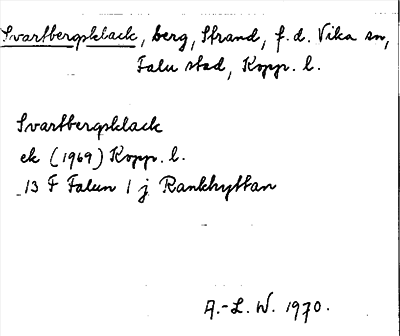 Svartbergsklack, berg, Strand, f.d. Vika sn,
Falu stad, Kopp. l.
Svartbergsklack
ek (1969) Kopp. l.
13 F Falun 1 j Rankhyttan
A.-L. W. 1970.